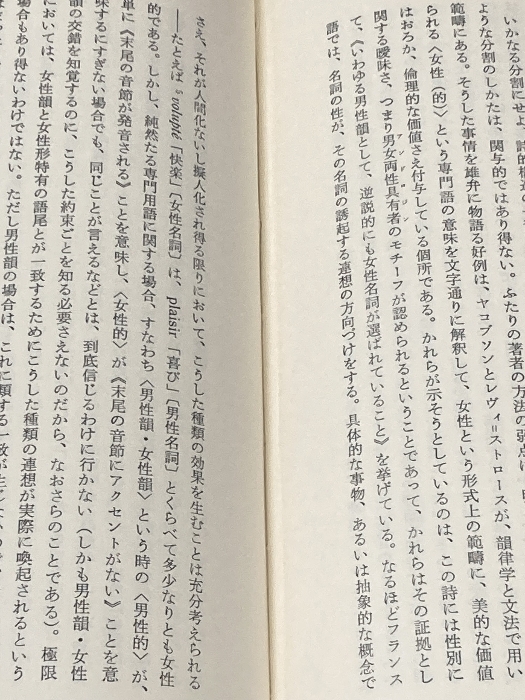 いかなる分割にせよ、詩的構
ような分割のしかたは、関与的ではあり得ない。ふたりの著者の方法の弱点は
範疇にある。そうした事情を雄弁に物語る好例は、ヤコブソンとレヴィ=ストロースが、韻律学と文法で用い
られる〈女性（的）〉という専門語の意味を文字通りに解釈して、女性という形式上の範疇に、美的な価値
はおろか、倫理的な価値さえ付与している個所である。かれらが示そうとしているのは、この詩には性別に
関する曖昧さ、つまり男女両性具有者のモチーフが認められるということであって、かれらはその証拠とし
て、《いわゆる男性韻として、逆説的にも女性名詞が選ばれていること》を挙げている。なるほどフランス
語では、名詞の性が、その名詞の誘起する連想の方向づけをする。具体的な事物、あるいは抽象的な概念で
さえ、それが人間化ないし擬人化され得る限りにおいて、こうした種類の効果を生むことは充分考えられる
――たとえば volupté「快楽」〔女性名詞〕は、plaisir「喜び」〔男性名詞〕とくらべて多少なりとも女性
的である。しかし、純然たる専門用語に関する場合、すなわち〈男性韻・女性韻〉という時の〈男性的〉が、
単に《末尾の音節が発音される》ことを意味し、〈女性的〉が《末尾の音節にアクセントがない》ことを意
味するにすぎない場合でも、同じことが言えるなどとは、到底信じるわけに行かない（しかも男性韻・女性
韻の交錯を知覚するのに、こうした約束ごとを知る必要さえないのだから、なおさらのことである）。極限
においては、女性韻と女性形特有の語尾とが一致するためにこうした種類の連想が実際に喚起されるという
場合もあり得ないわけではない。ただし男性韻の場合は、これに類する一致が生じないので、